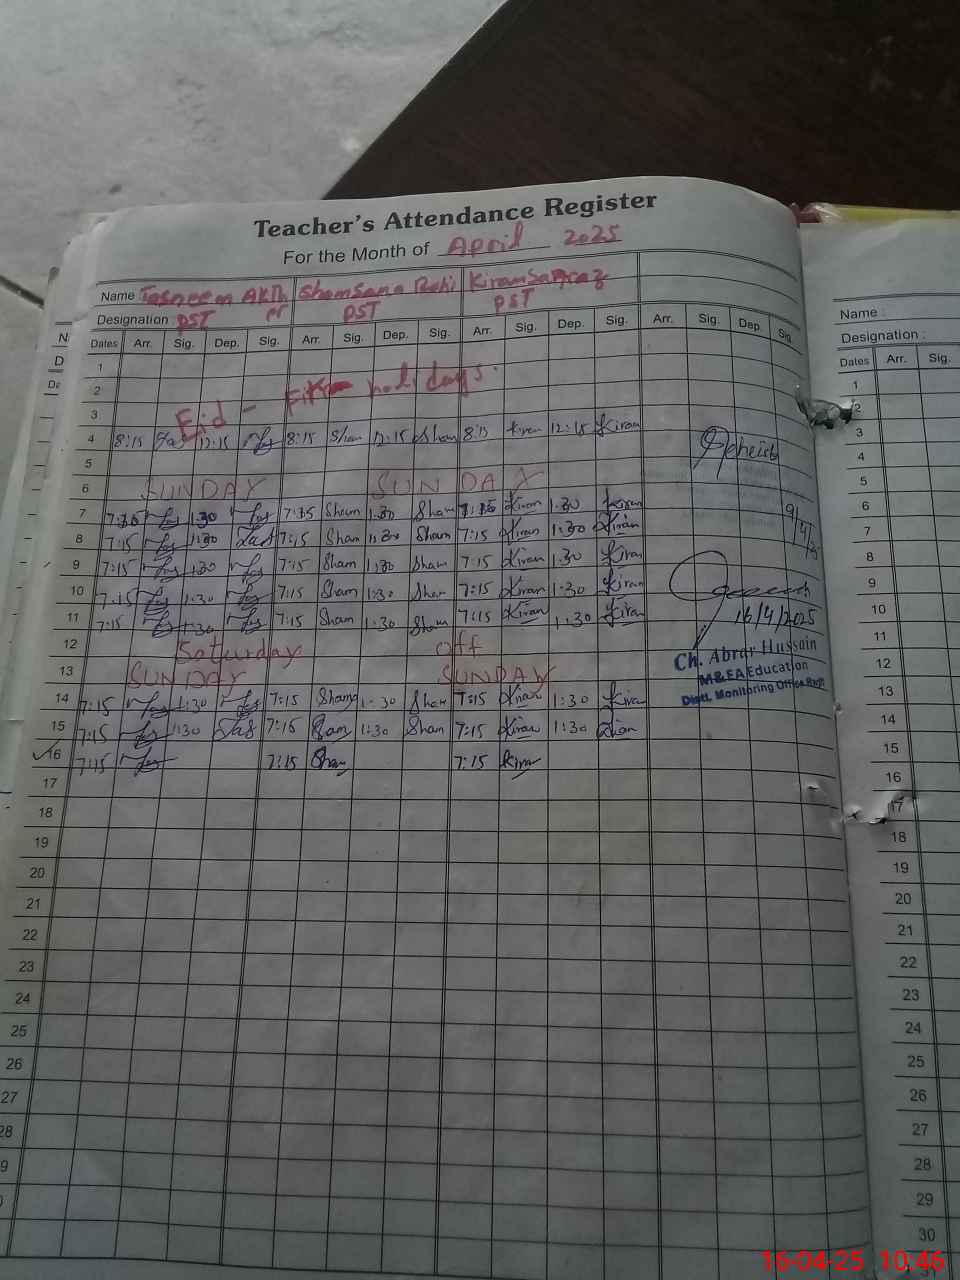 Teacher's Attendance Register
For the Month of April 2025
Name Tasneem Akhter Shamsana Kiran
Designation : PST PST PST
Dates Arr. Sig. Dep. Sig. Arr. Sig. Dep. Sig. Arr. Sig. Dep. Sig. Arr. Sig. Dep. Sig.
1
2
Eid - holidays.
3
4 8:15 12:15 8:15 Sham 12:15 Sham 8:15 Kiran 12:15 Kiran
5
6 SUNDAY SUNDAY
7 1:30 Sham 1:30 Sham Kiran 1:30 Kiran
8 7:15 1:30 7:15 Sham 1:30 Sham 7:15 Kiran 1:30 Kiran
9 7:15 1:30 7:15 Sham 1:30 Sham 7:15 Kiran 1:30 Kiran
10 7:15 1:30 7:15 Sham 1:30 Sham 7:15 Kiran 1:30 Kiran
11 7:15 1:30 7:15 Sham 1:30 Sham 7:15 Kiran 1:30 Kiran
12 Saturday off
13 SUNDAY SUNDAY
14 7:15 1:30 7:15 Sham 1:30 Sham 7:15 Kiran 1:30 Kiran
15 7:15 1:30 7:15 Sam 1:30 Sham 7:15 Kiran 1:30
16 7:15 7:15 Sham 7:15 Kiran
17
18
19
20
21
22
23
24
25
26
27
28
9
16/4/2025
Ch. Abrar Hussain
M&EA Education
Distt. Monitoring Office
Name :
Designation :
Dates Arr. Sig.
1
2
3
4
5
6
7
8
9
10
11
12
13
14
15
16
17
18
19
20
21
22
23
24
25
26
27
28
29
30
31
16-04-25 10:46